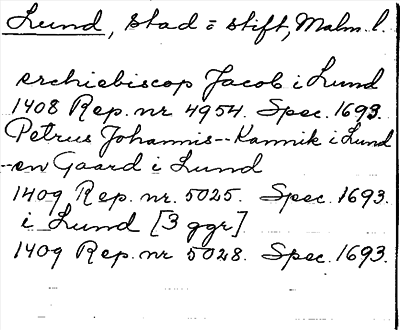 Lund, stad o stift, Malm. l.
erchiebiscop Jacob i Lund
1408 Rep. nr 4954. Spec. 1693.
Petrus Johannis -- Kannik i Lund
-- en Gaard i Lund
1409 Rep. nr. 5025. Spec. 1693.
i Lund [3 ggr]
1409 Rep. nr 5028. Spec. 1693.